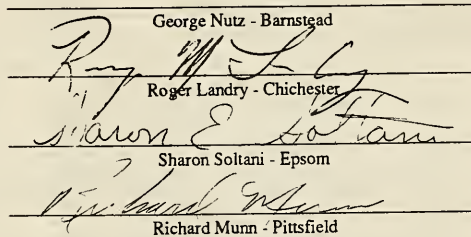 George Nutz - Barnstead
Roger Landry - Chichester
Sharon E Soltani
Sharon Soltani - Epsom
Richard Munn
Richard Munn - Pittsfield